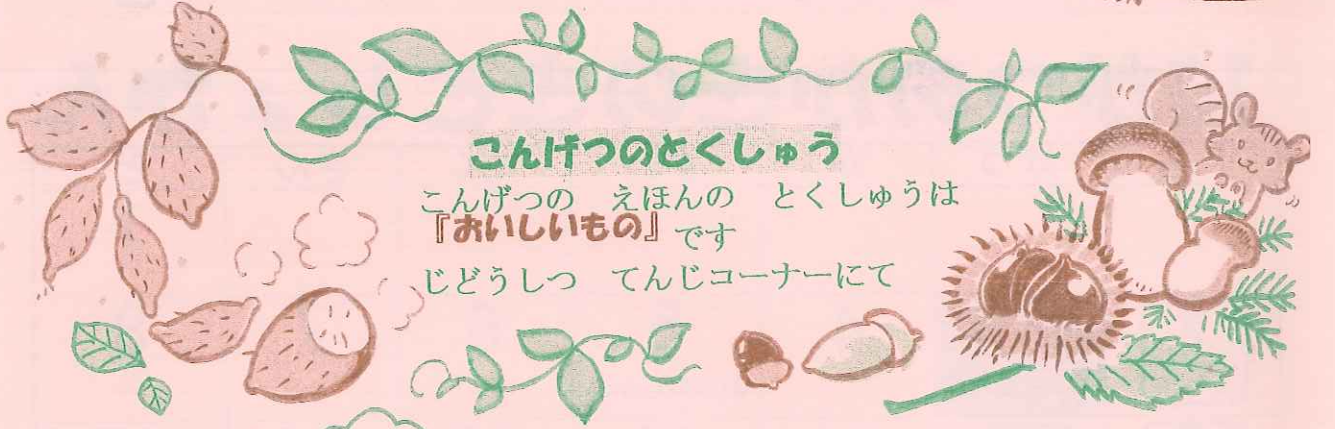 こんげつのとくしゅう
こんげつの　えほんの　とくしゅうは
『おいしいもの』です
じどうしつ　てんじコーナーにて